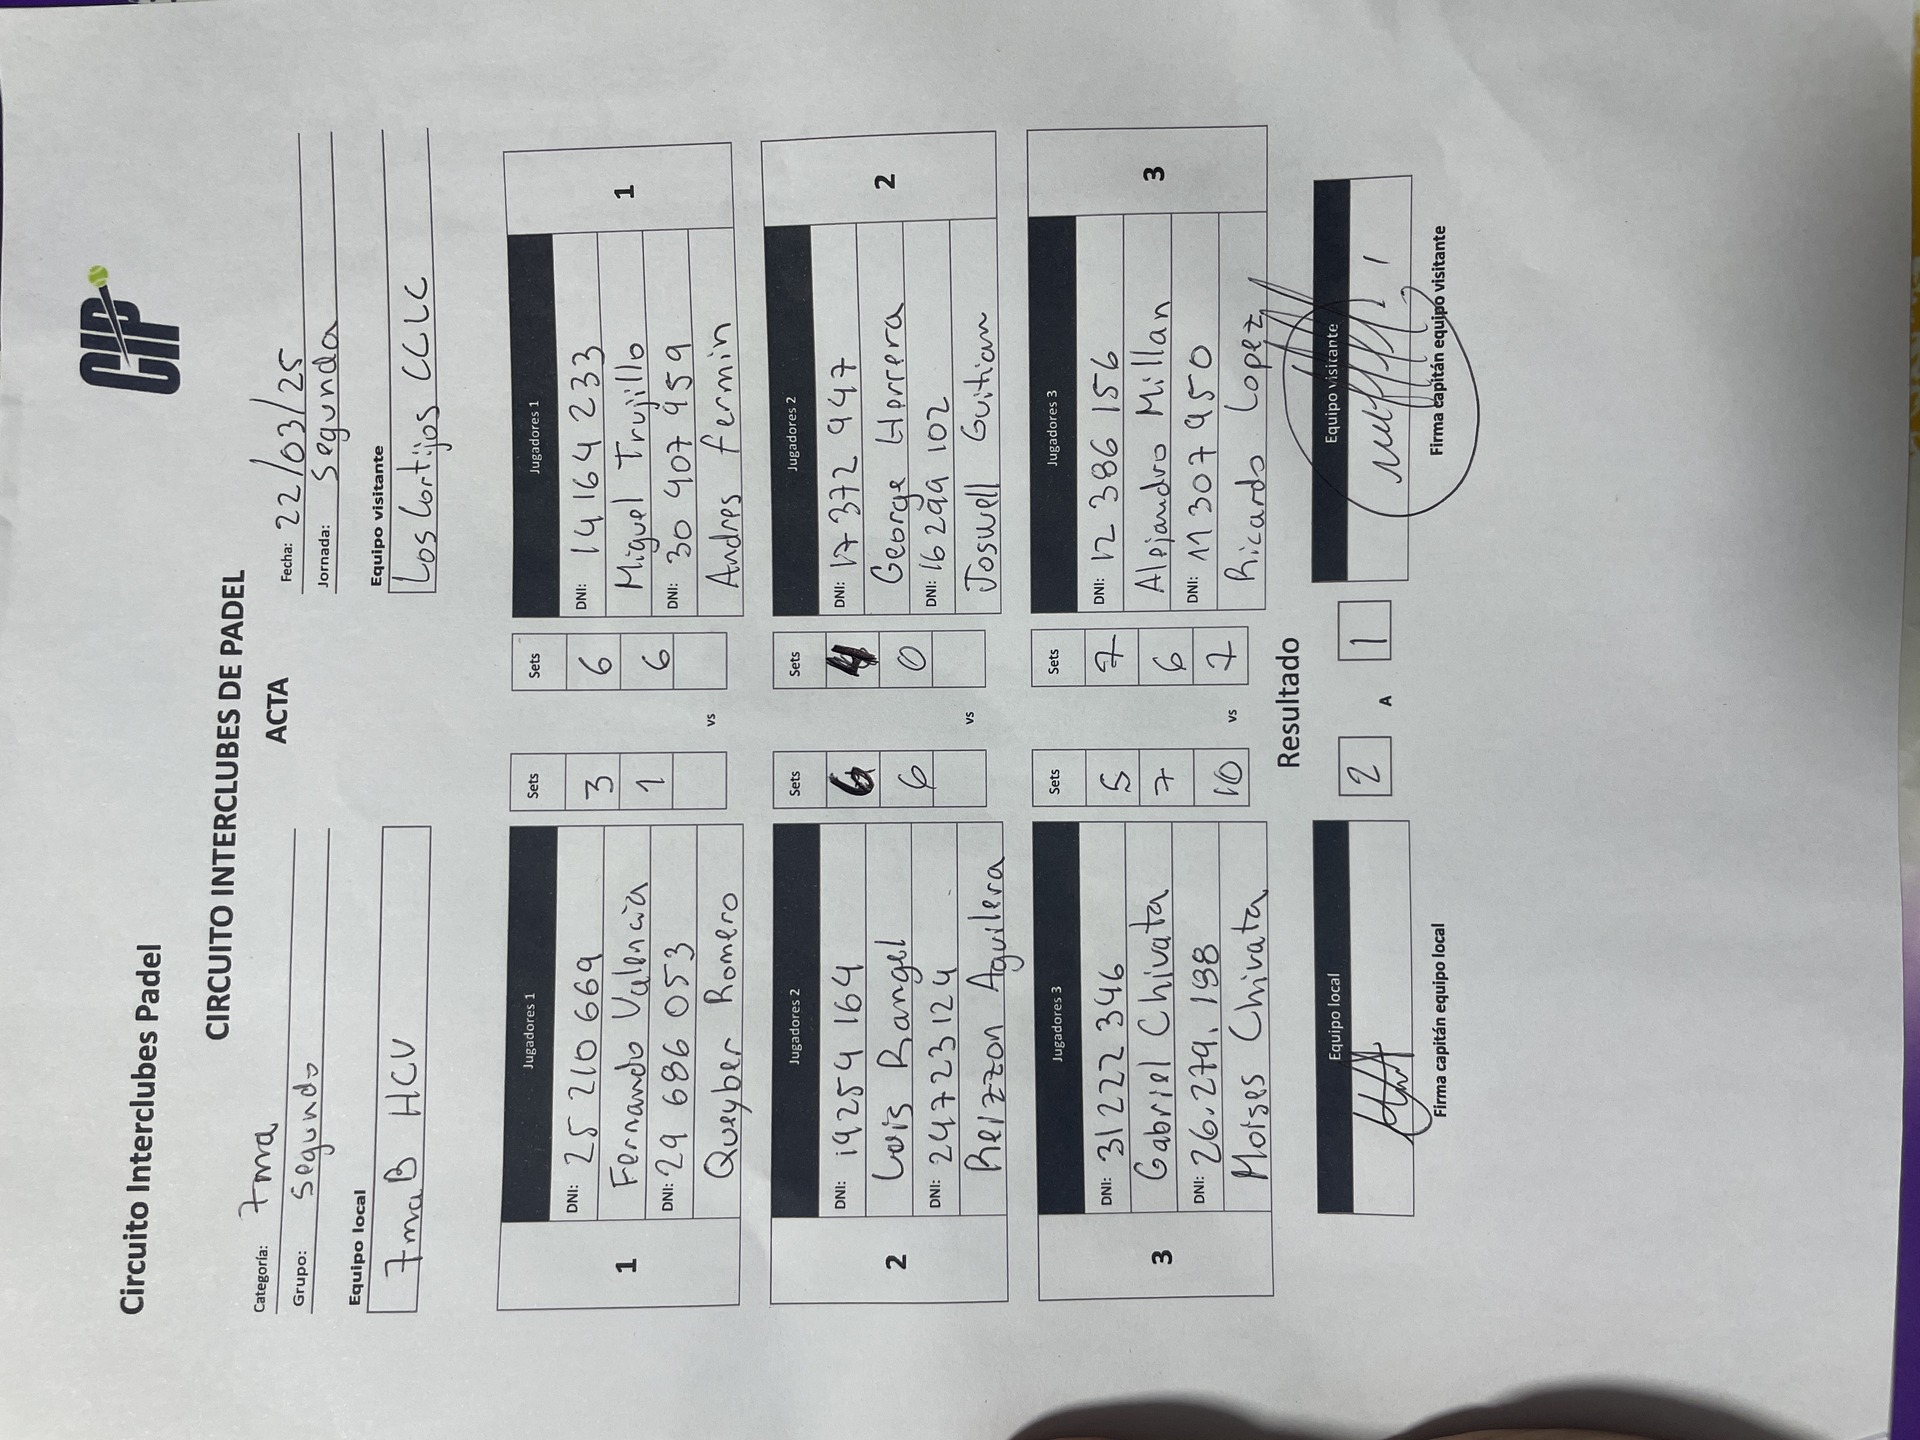 Circuito Interclubes Padel
CIP
CIRCUITO INTERCLUBES DE PADEL
ACTA
Categoría: 7ma
Fecha: 22/03/25
Grupo: Segundo
Jornada: Segunda
Equipo local
Equipo visitante
7ma B HCV
Los Cortijos CCLC
Jugadores 1 Sets Sets Jugadores 1
1
DNI: 25 210 669 3 6 DNI: 14 164 233
Fernando Valencia 1 6 Miguel Trujillo
DNI: 29 686 053 DNI: 30 407 959
Queyber Romero vs Andres fermin
1
Jugadores 2 Sets Sets Jugadores 2
2
DNI: 19254 164 6 4 DNI: 17 372 947
Luis Rangel 6 0 George Herrera
DNI: 24723124 DNI: 16 299 102
Reizzon Aguilera vs Joswell Guitian
2
Jugadores 3 Sets Sets Jugadores 3
3
DNI: 31 222 346 5 7 DNI: 12 386 156
Gabriel Chivata 7 6 Alejandro Millan
DNI: 26.279.198 10 7 DNI: 11 307 950
Moises Chivata vs Ricardo Lopez
3
Resultado
Equipo local 2 A 1 Equipo visitante
Firma capitán equipo local
Firma capitán equipo visitante